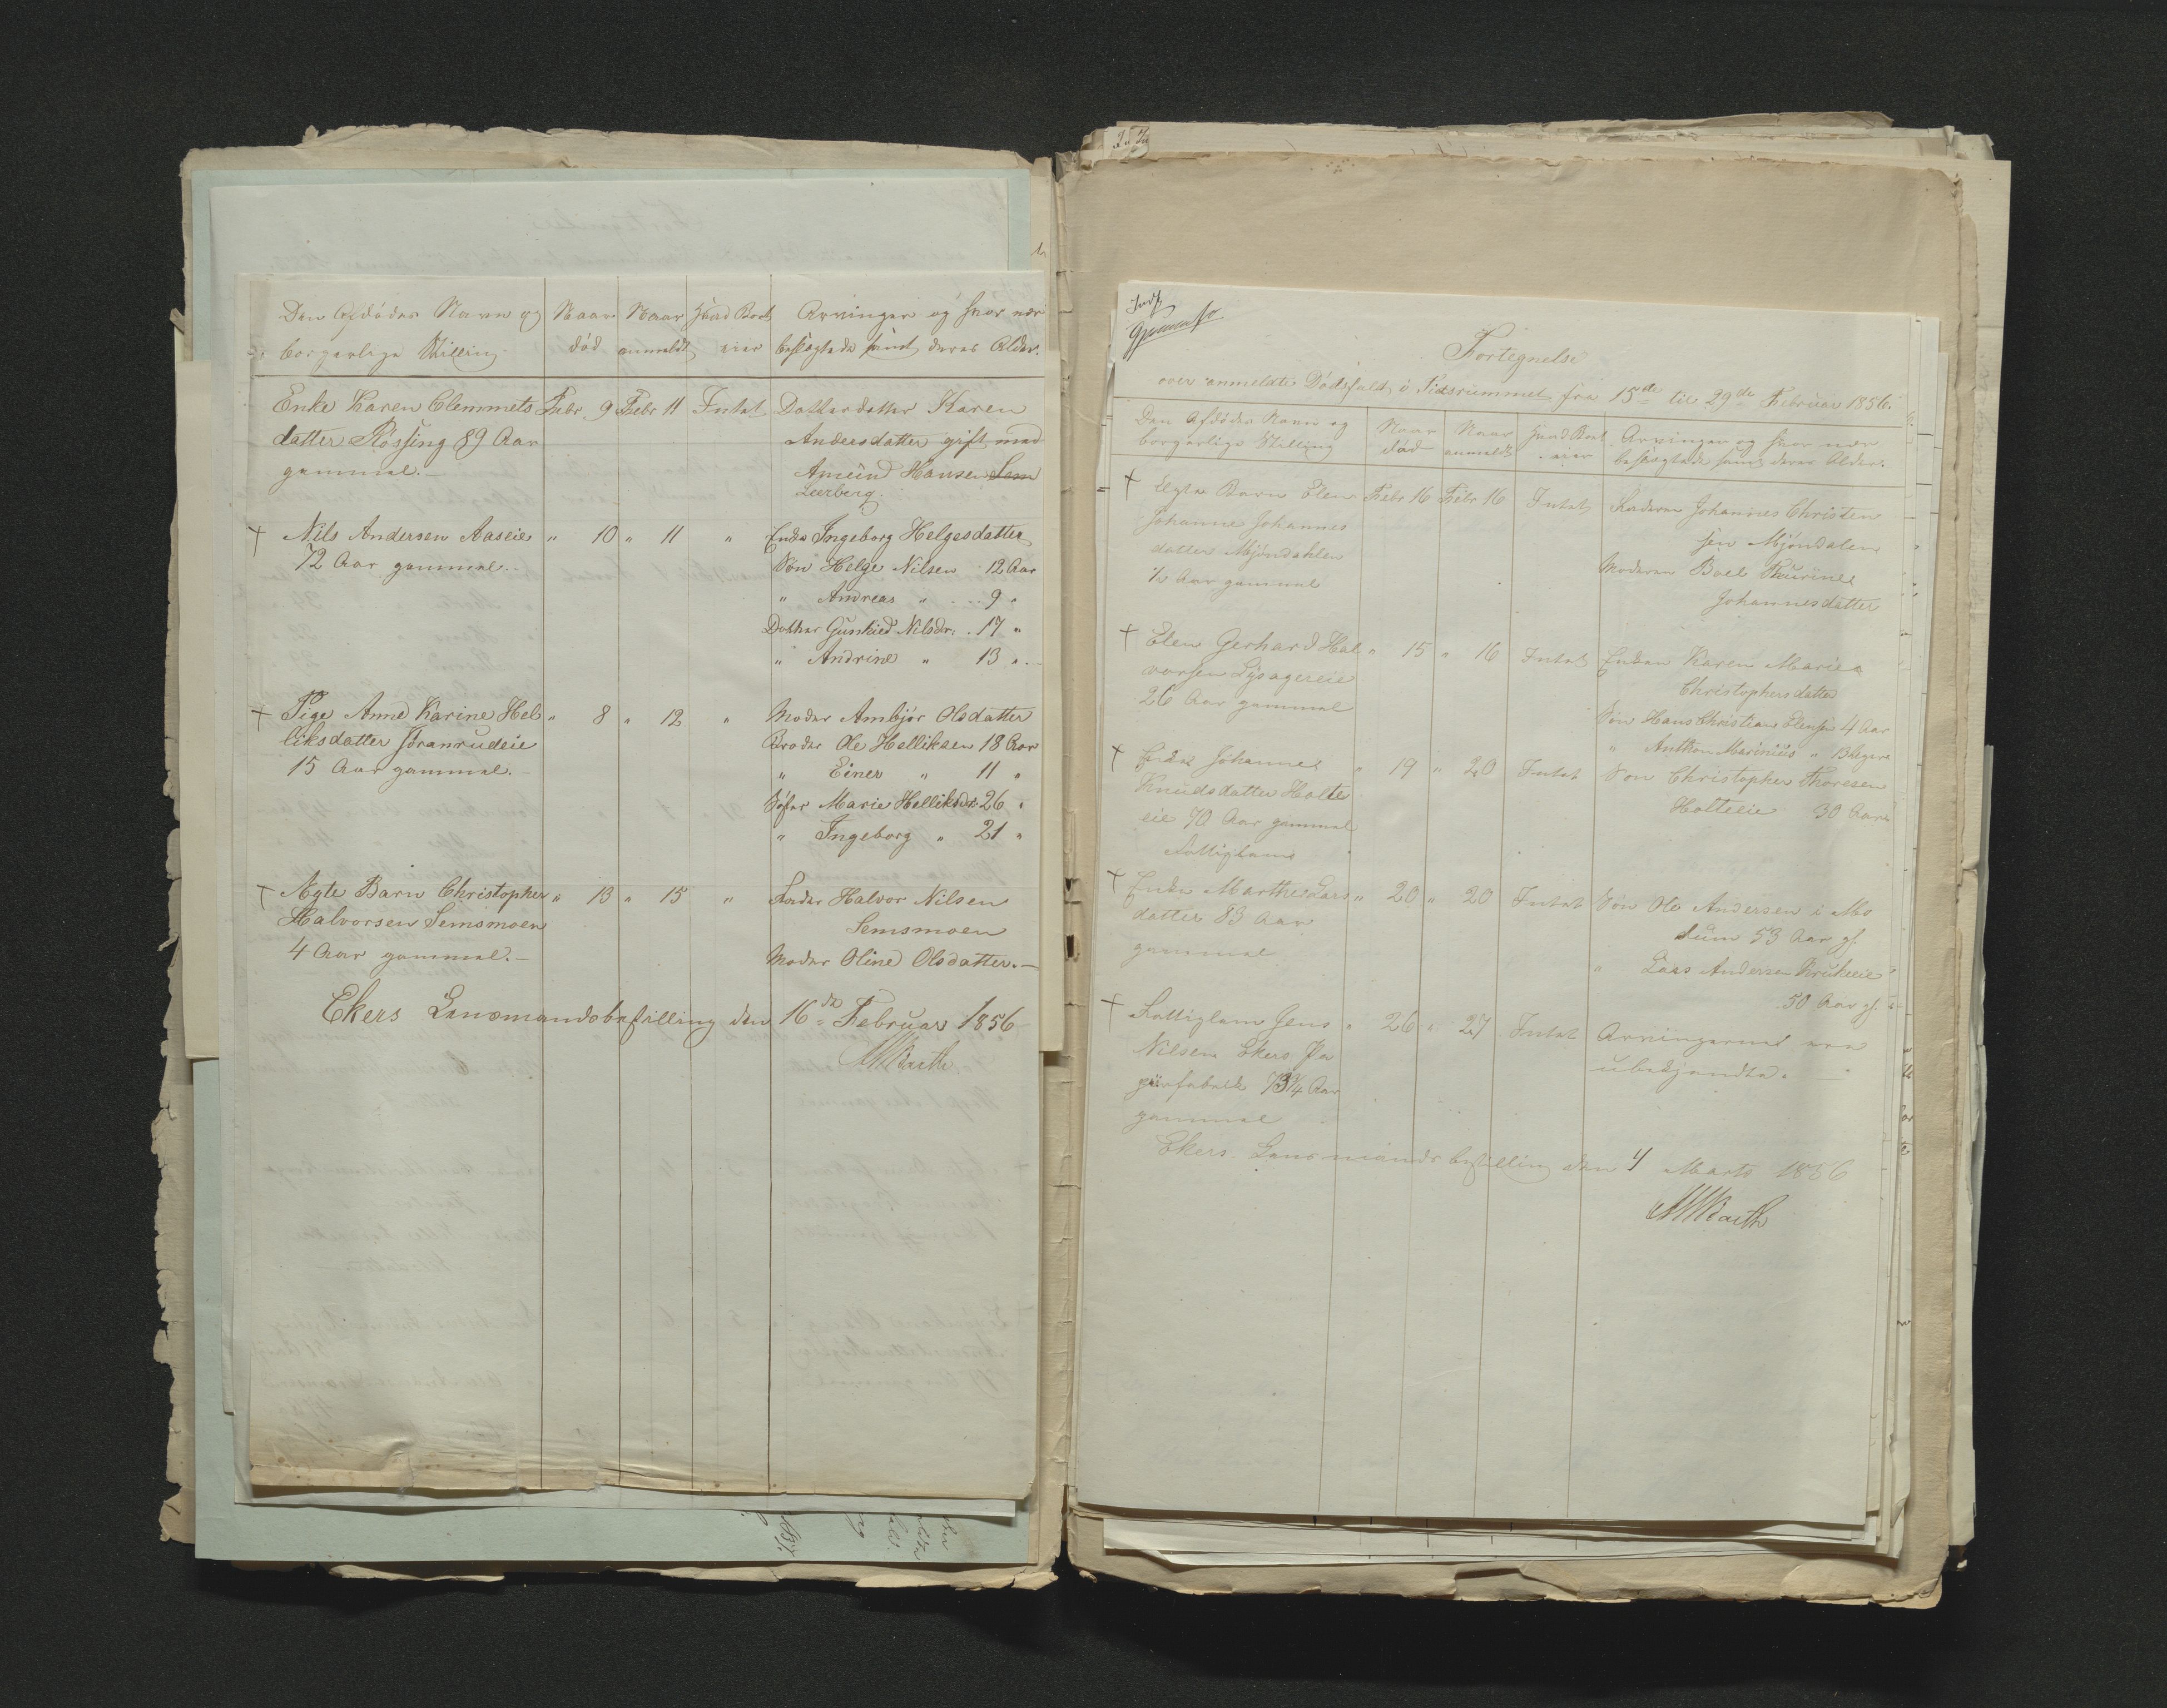 Den Afdødes Navn og borgerlige Stilling
Naar død
Naar anmeldt
Hvad Boet eier
Arvinger og hvor nær beslægtede samt deres Alder.
Enke Karen Clemmets Febr. 9 Febr 11 Intet Datterdatter Karen
datter Røssing 89 Aar Andersdatter gift med
gammel.- Amund Hansen
Leerberg.
† Nils Andersen Aaseie " 10 " 11 " Enke Ingeborg Helgesdatter
72 Aar gammel.. Søn Helge Nilsen 12 Aar
" Andreas " 9 "
Datter Gunhild Nilsdr. 17 "
" Andrine " 13 "
† Pige Anne Karine Hel " 8 " 12 " Moder Ambjør Olsdatter
liksdatter Broder Ole Helliksen 18 Aar
15 Aar gammel.- " Einer " 11 "
Søster Marie Helliksdr. 26 "
" Ingeborg " 21 "
† Ægte Barn Christopher " 13 " 15 " Fader Halvor Nilsen
Halvorsen Semsmoen Semsmoen
4 Aar gammel.- Moder Oline Olsdatter.-
Ekers Lensmandsbestilling den 16de Februar 1856
Fortegnelse
over anmeldte Dødsfald i Tidsrummet fra 15de til 29de Februar 1856.
Den Afdødes Navn og borgerlige Stilling
Naar død
Naar anmeldt
Hvad Boet eier
Arvinger og hvor nær beslægtede samt deres Alder.
† Ægte Barn Elen Febr 16 Febr 16 Intet Faderen Johannes Christen
Johanne Johannes sen Mjøndalen
datter Mjøndahlen Moderen Boel Thurine
½ Aar gammel Johannesdatter
† Elen Gerhard Hal " 15 " 16 Intet Enken Karen Marie
vorsen Lysagereie Christophersdatter
26 Aar gammel Søn Hans Christian Elensen 4 Aar
" Anthon Marinius "
† Enke Johanne " 19 " 20 Intet Søn Christopher Thoresen
Knudsdatter Holte Holteeie 30 Aar
eie 70 Aar gammel
Fattiglem
† Enke Marthe Lars " 20 " 20 Intet Søn Ole Andersen i Mo
datter 83 Aar dum 53 Aar gl.
gammel " Lars Andersen
50 Aar gl.
† Fattiglem Jens " 26 " 27 Intet Arvingerne ere
Nilsen Ekers Pa ubekjendte.
pirfabrik 73¾ Aar
gammel
Ekers Lensmandsbestilling den 4 Marts 1856